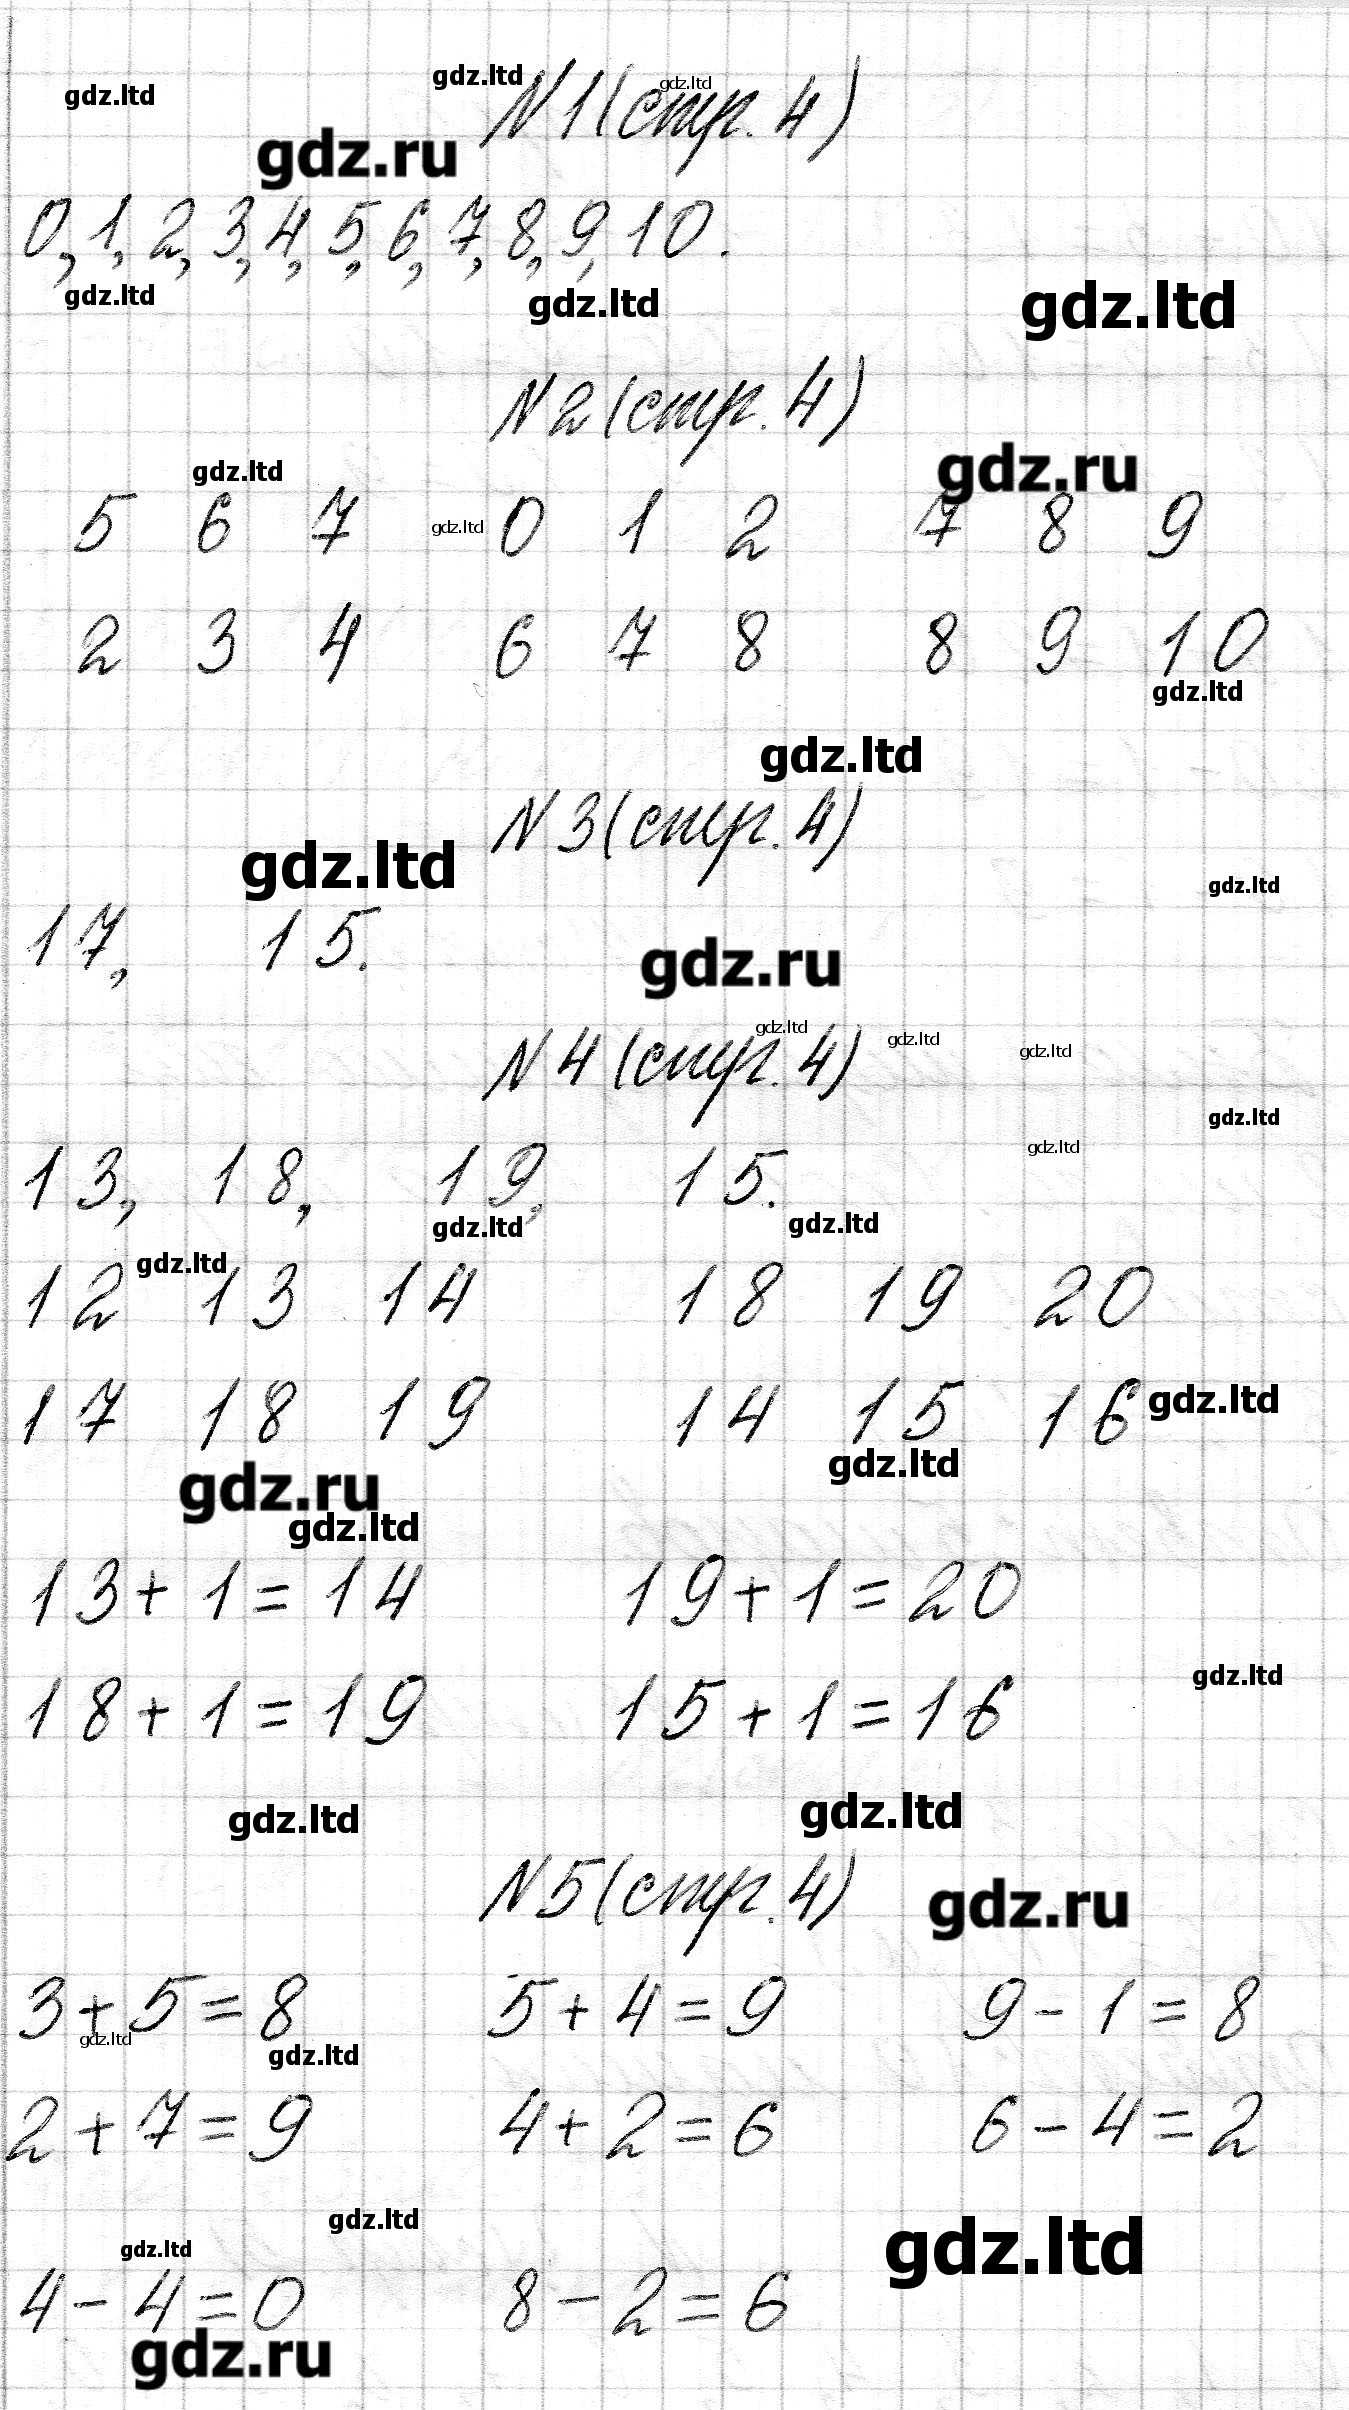 gdz.ltd gdz.ltd gdz.ltd
N1(стр. 4)
gdz.ru
0, 1, 2, 3, 4, 5, 6, 7, 8, 9, 10.
gdz.ltd gdz.ltd gdz.ltd
N2(стр. 4)
gdz.ltd gdz.ru
5 6 7 gdz.ltd 0 1 2 7 8 9
2 3 4 6 7 8 8 9 10
gdz.ltd
gdz.ltd
N3(стр. 4)
gdz.ltd gdz.ltd
17, 15.
gdz.ru
gdz.ltd gdz.ltd gdz.ltd
N4(стр. 4)
gdz.ltd
gdz.ltd
13, 18, 19, 15.
gdz.ltd gdz.ltd
gdz.ltd
12 13 14 18 19 20
17 18 19 14 15 16 gdz.ltd
gdz.ru gdz.ltd
gdz.ltd
13 + 1 = 14 19 + 1 = 20
gdz.ltd
18 + 1 = 19 15 + 1 = 16
gdz.ltd gdz.ltd
N5(стр. 4)
gdz.ru
3 + 5 = 8 5 + 4 = 9 9 - 1 = 8
gdz.ltd gdz.ltd
2 + 7 = 9 4 + 2 = 6 6 - 4 = 2
gdz.ltd
gdz.ltd gdz.ltd
4 - 4 = 0 8 - 2 = 6
gdz.ru